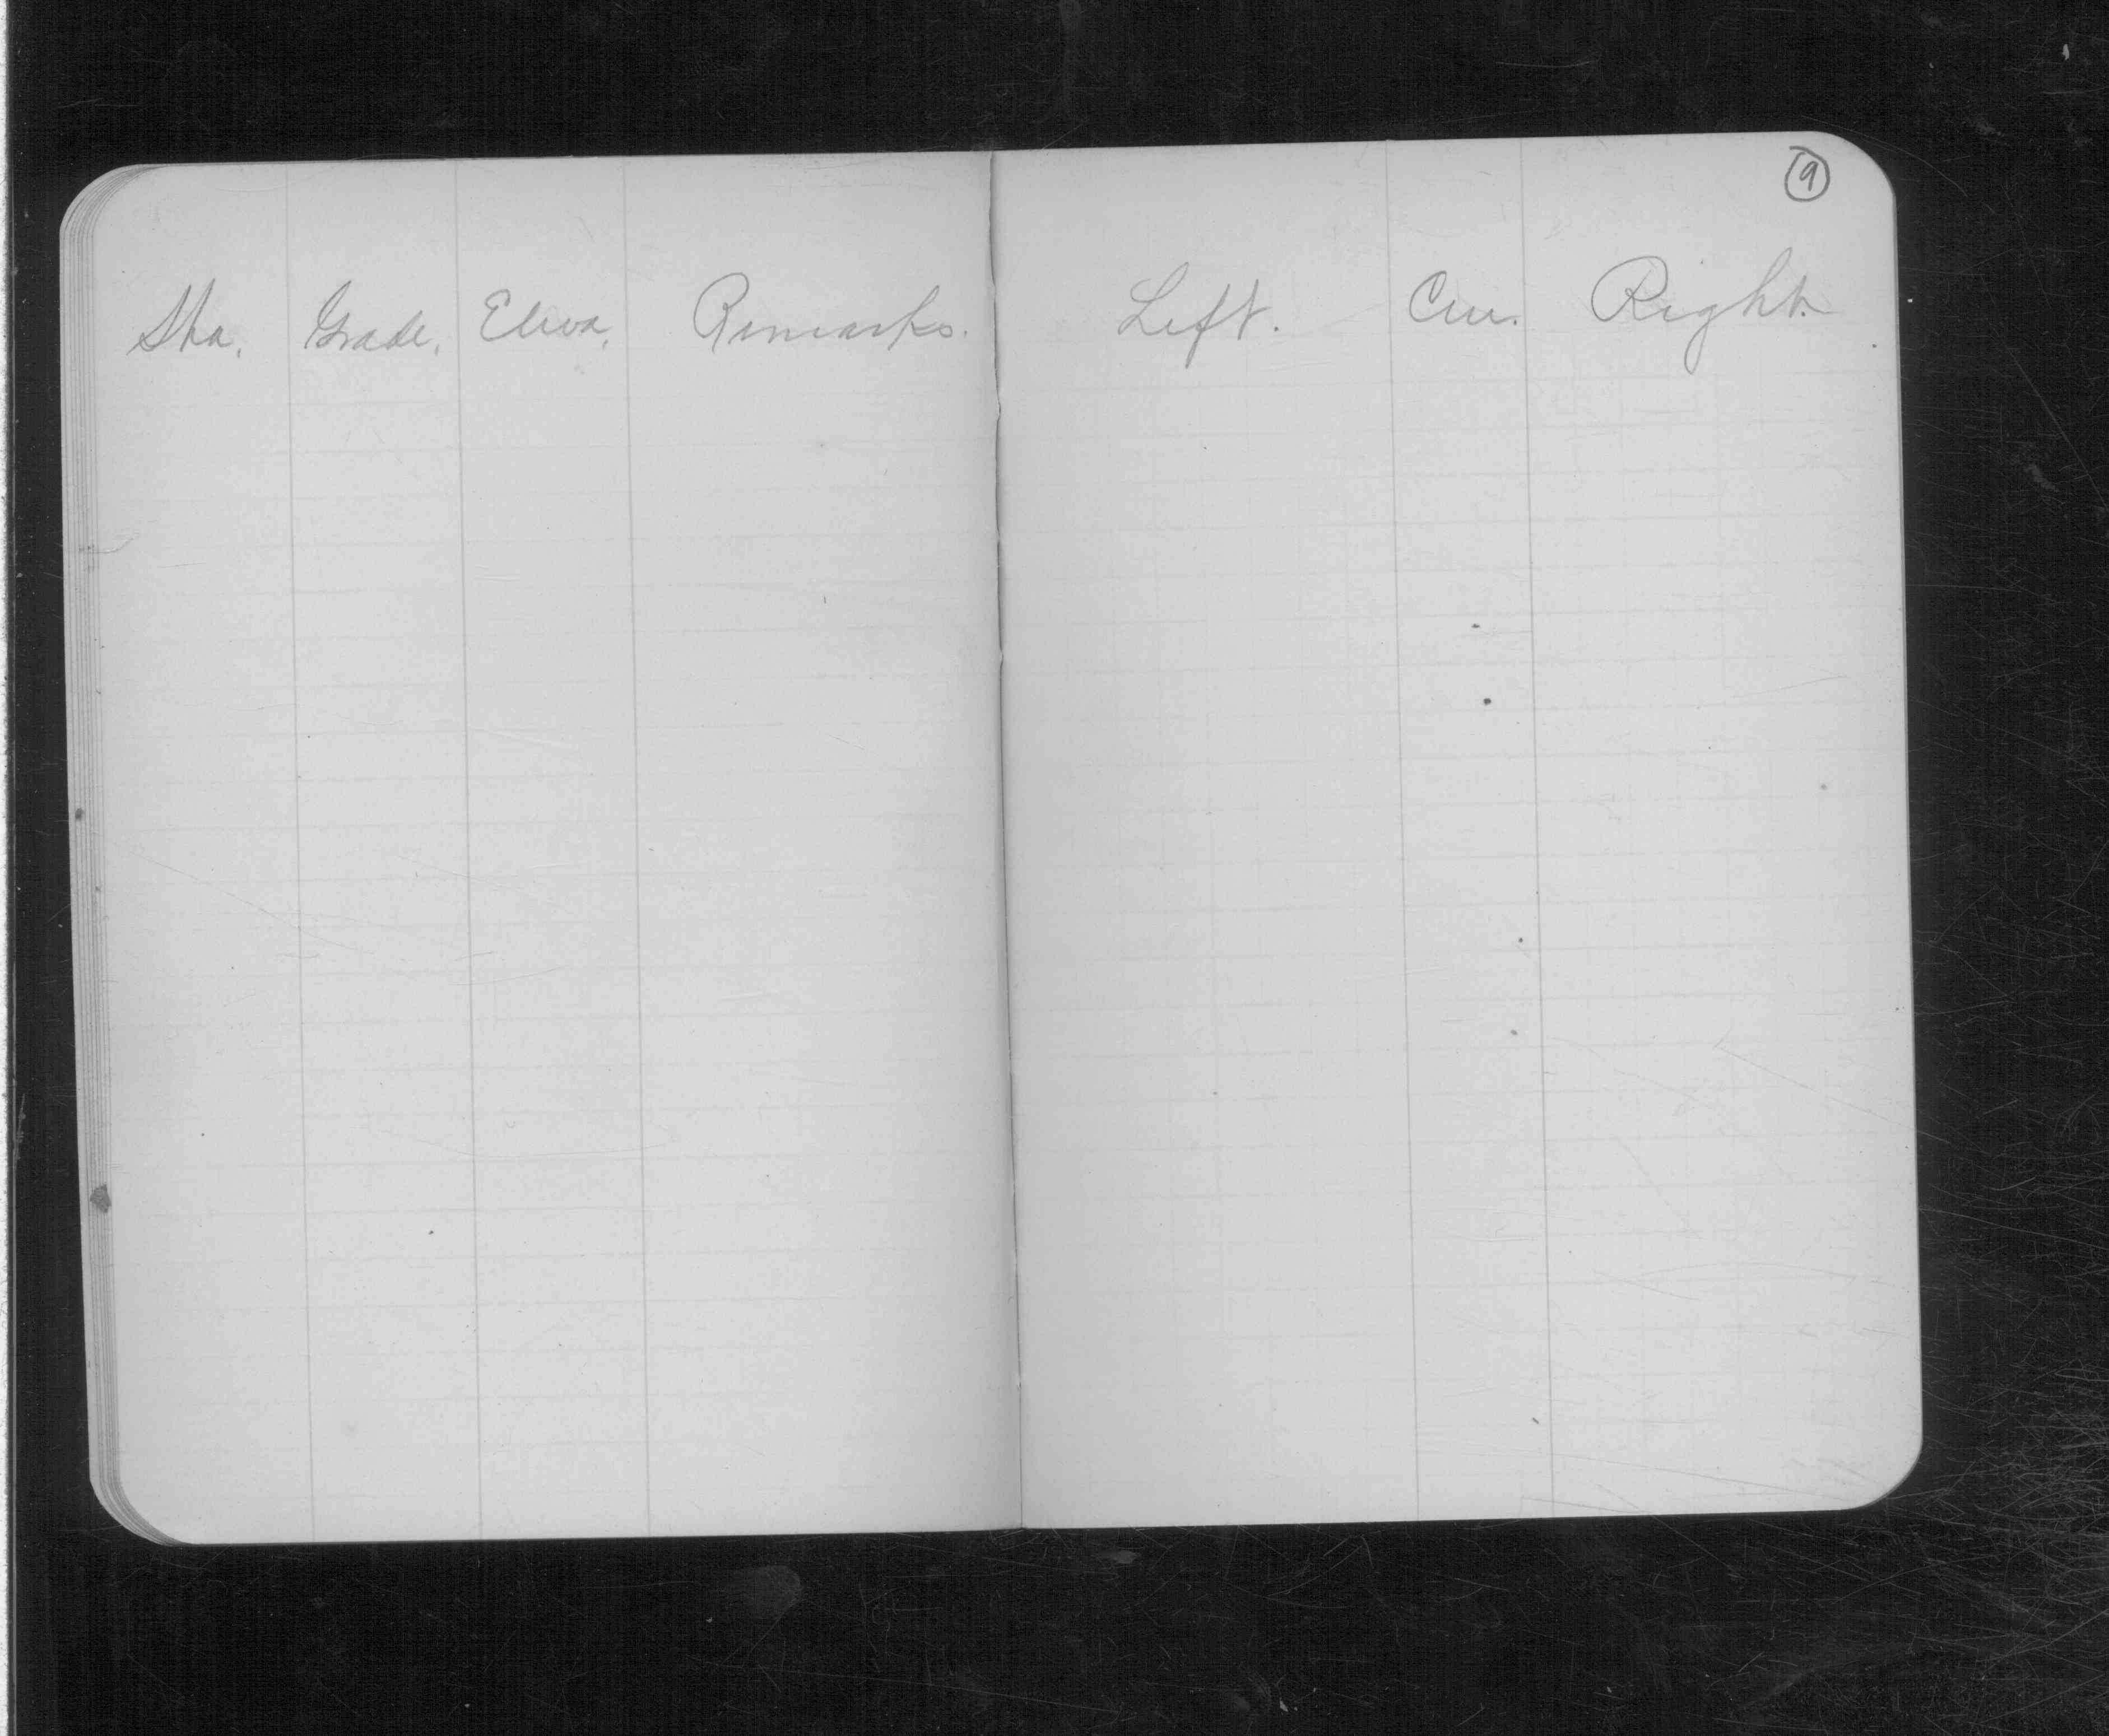 9
Sta. Grade. Eleva. Remarks. Left. Cen. Right.